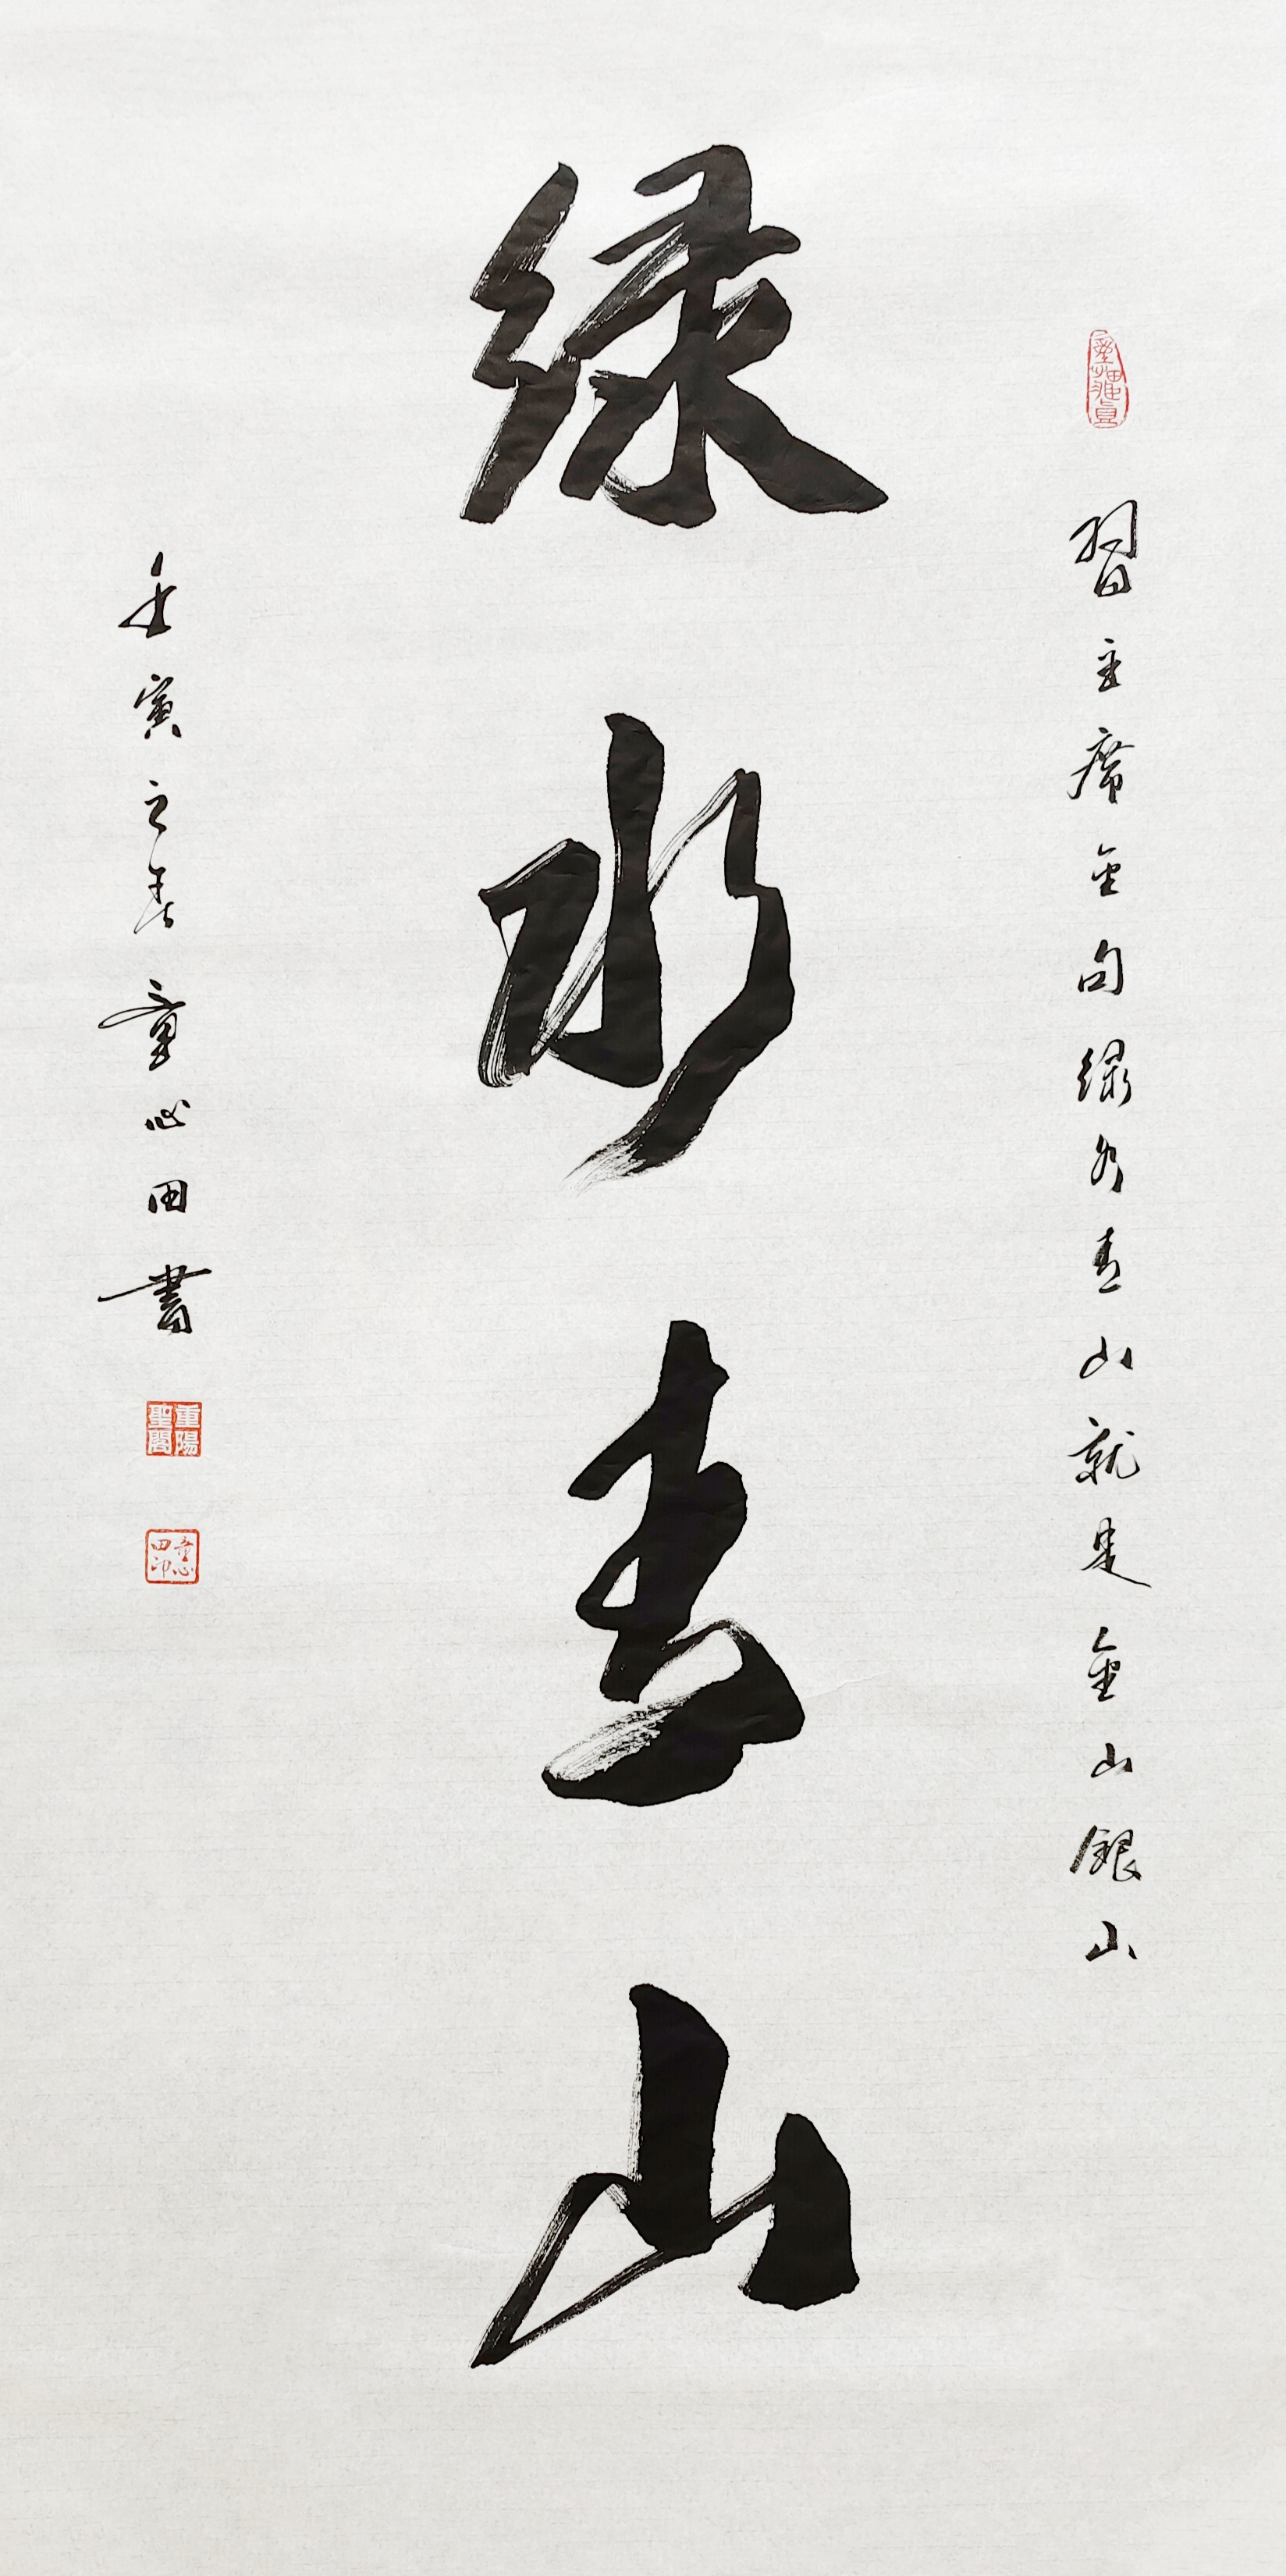 習主席金句綠水青山就是金山銀山
绿水青山
壬寅之春童心田書
重陽聖閣
童心田印